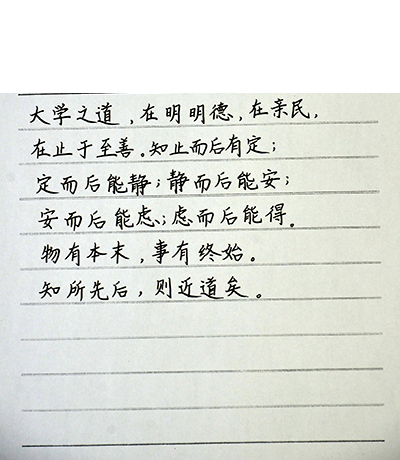 大学之道,在明明德,在亲民,
在止于至善。知止而后有定;
定而后能静;静而后能安;
安而后能虑;虑而后能得。
物有本末,事有终始。
知所先后,则近道矣。